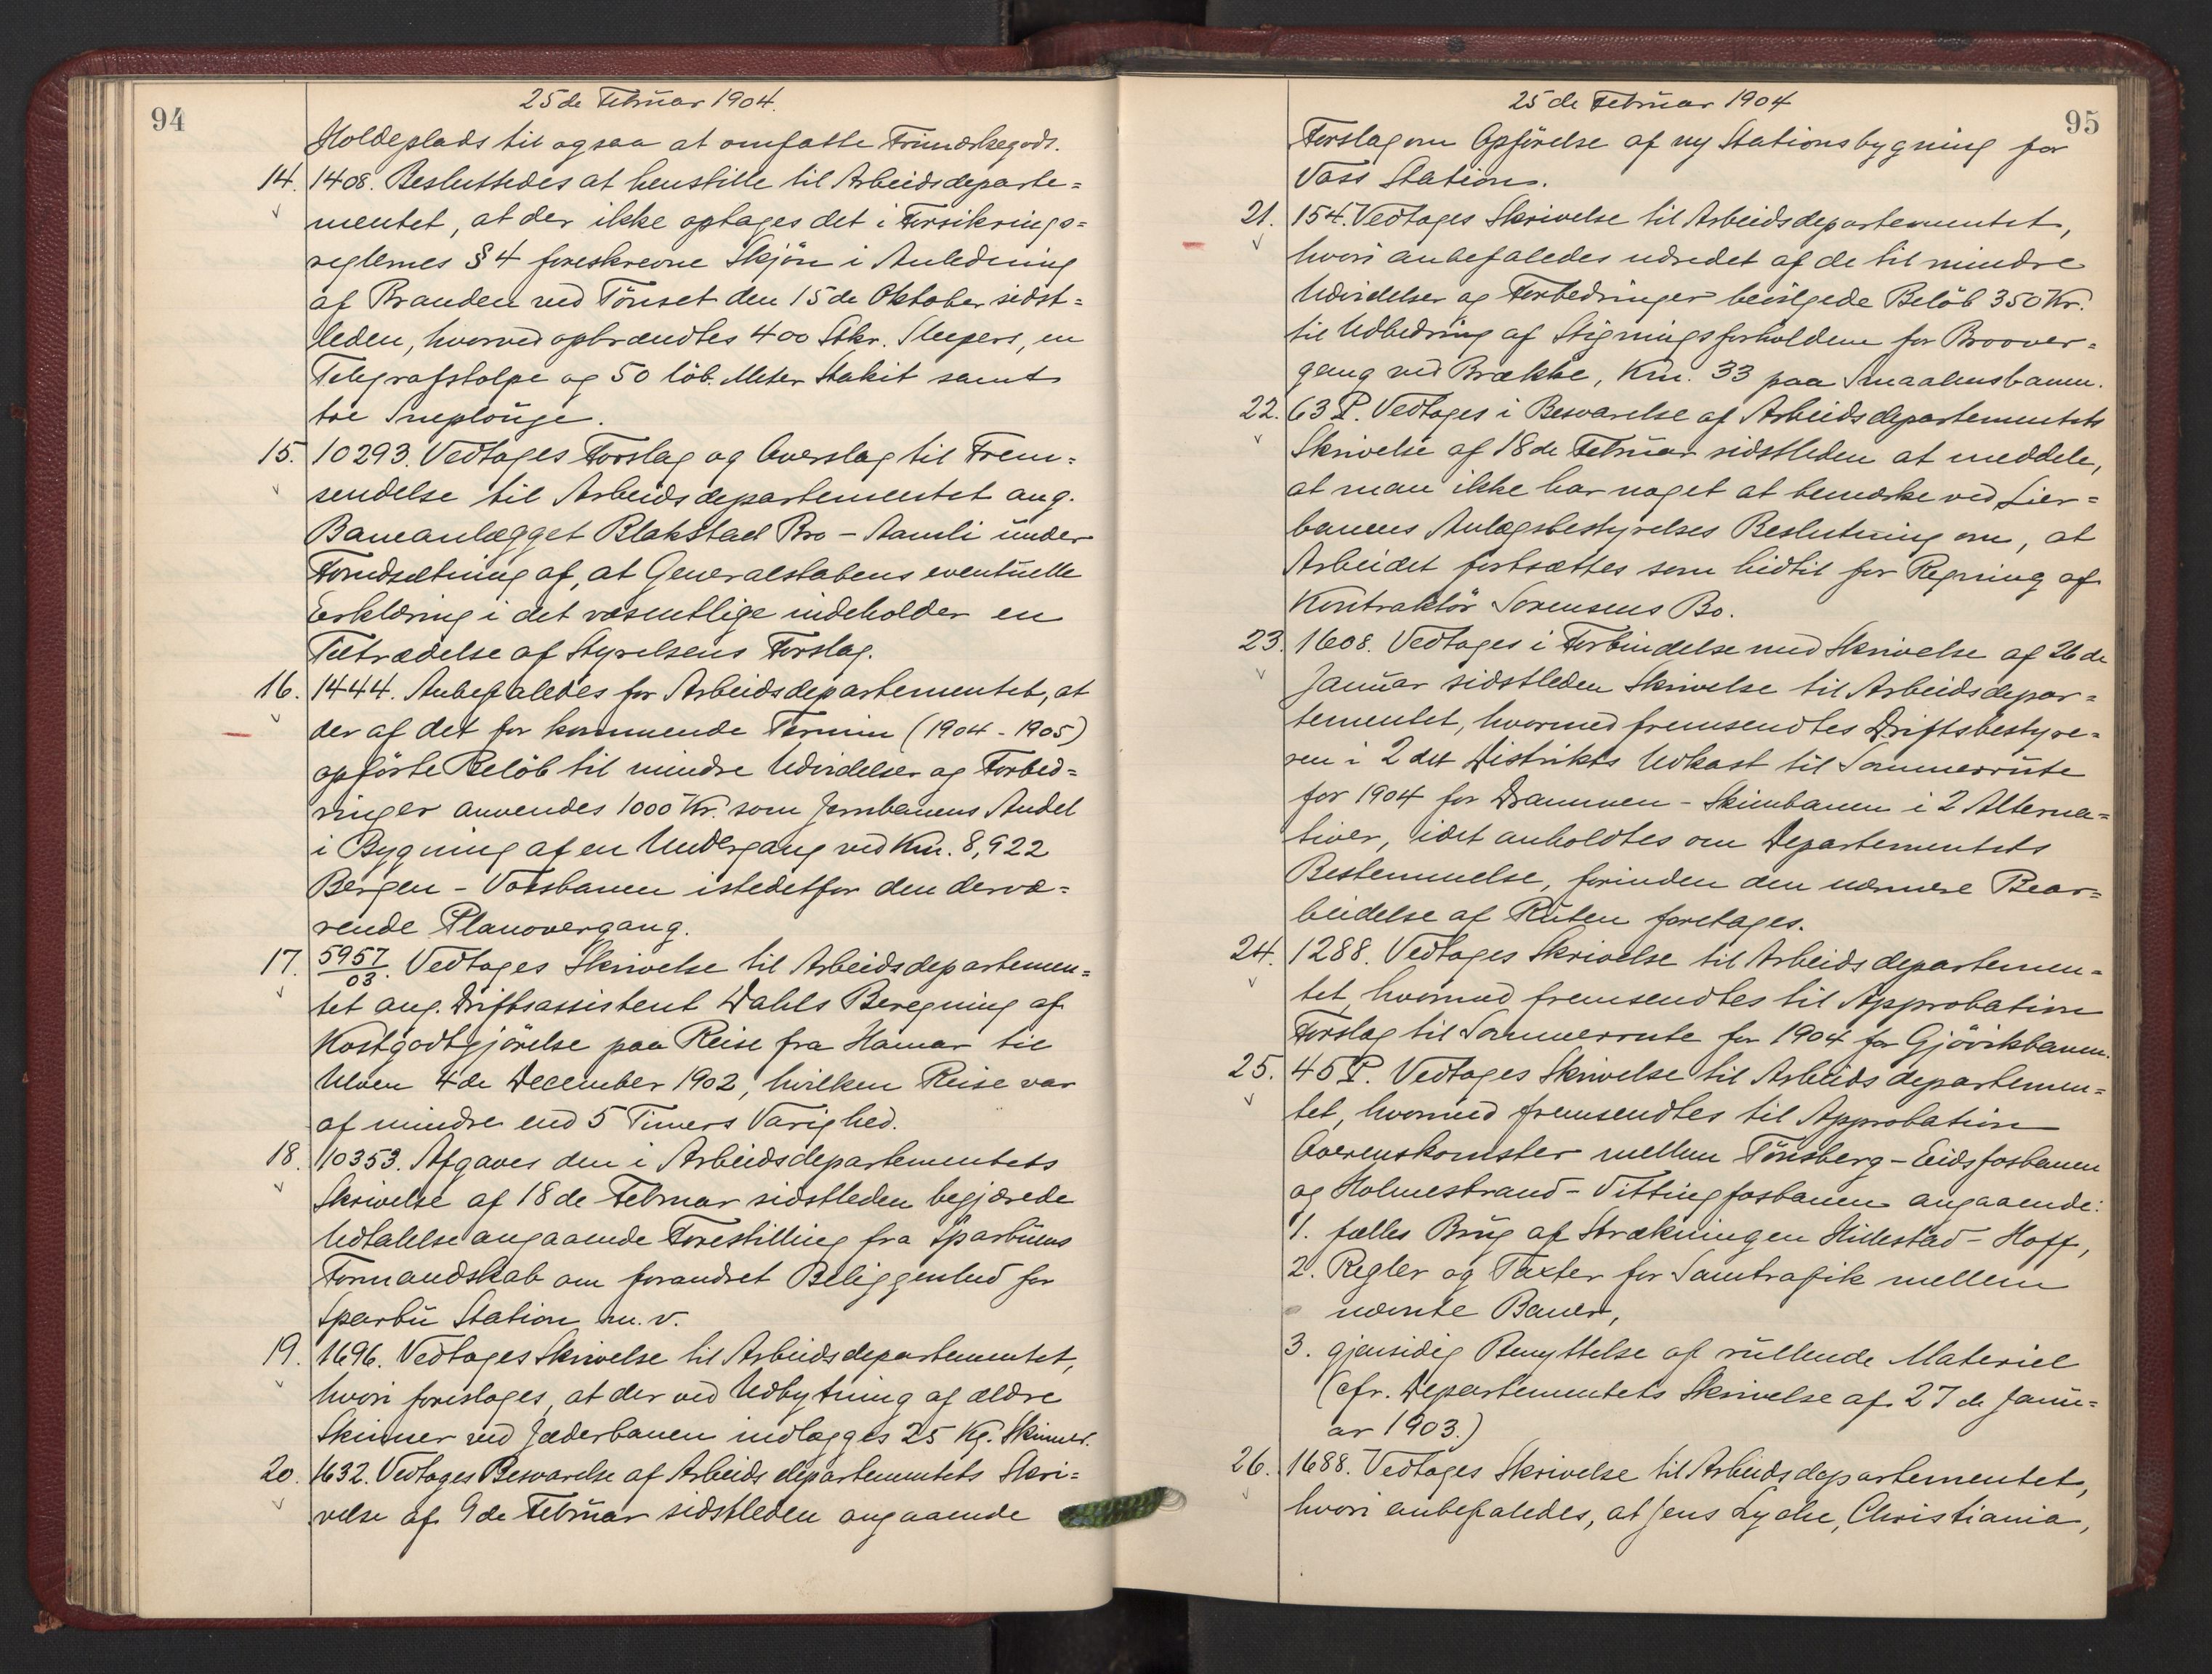 94
25de Februar 1904.
Holdeplads til ogsaa at omfatte Frimærkegods.
14. 1408. Besluttedes at henstille til Arbeidsdeparte=
mentet, at der ikke optages det i Forsikrings=
reglernes § 4 foreskrevne Skjøn i Anledning
af Branden ved Tönset den 15de Oktober sidst=
leden, hvorved opbrændtes 400 Stkr. Sleepers, en
Telegrafstolpe og 50 löb. Meter Stakit samt
to Sneplouge.
15. 10293. Vedtages Forslag og Overslag til Frem=
sendelse til Arbeidsdepartementet ang.
Baneanlægget Blakstad Bro - Aamli under
Forudsætning af, at Generalstabens eventuelle
Erklæring i det væsentlige indeholder en
Tiltrædelse af Styrelsens Forslag.
16. 1444. Anbefaledes for Arbeidsdepartementet, at
der af det for kommende Termin (1904 - 1905)
opförte Belöb til mindre Udvidelser og Forbed=
ringer anvendes 1000 Kr. som Jernbanens Andel
i Bygning af en Undergang ved Km. 8,922
Bergen - Vossbanen istedetfor den dervæ=
rende Planovergang.
17. 5957/03. Vedtages Skrivelse til Arbeidsdepartemen=
tet ang. Driftsassistent Dahls Beregning af
Kostgodtgjörelse paa Reise fra Hamar til
Ulven 4de December 1902, hvilken Reise var
af mindre end 5 Timers Varighed.
18. 10353. Afgaves den i Arbeidsdepartementets
Skrivelse af 18de Februar sidstleden begjærede
Udtalelse angaaende Forestilling fra Sparbuens
Formandskab om forandret Beliggenhed for
Sparbu Station m. v.
19. 1696. Vedtages Skrivelse til Arbeidsdepartementet,
hvori foreslages, at der ved Udbytning af ældre
Skinner ved Jæderbanen indlægges 25 Kg. Skinner.
20. 1632. Vedtages Besvarelse af Arbeidsdepartementets Skri=
velse af 9de Februar sidstleden angaaende
95
25de Februar 1904
Forslag om Opförelse af ny Stationsbygning for
Voss Station.
21. 154. Vedtages Skrivelse til Arbeidsdepartementet,
hvori anbefaledes udredet af de til mindre
Udvidelser og Forbedringer bevilgede Belöb 350 Kr.
til Udbedring af Stigningsforholdene for Broover=
gang ved Brække, Km. 33 paa Smaalensbanen.
22. 63 P. Vedtages i Besvarelse af Arbeidsdepartementets
Skrivelse af 18de Februar sidstleden at meddele,
at man ikke har noget at bemærke ved Lier=
banens Anlægsbestyrelses Beslutning om, at
Arbeidet fortsættes som hidtil for Regning af
Kontraktör Sorensens Bo.
23. 1608. Vedtages i Forbindelse med Skrivelse af 26de
Januar sidstleden Skrivelse til Arbeidsdepar=
tementet, hvormed fremsendtes Driftsbestyre=
ren i 2det Distrikts Udkast til Sommerrute
for 1904 for Drammen - Skiensbanen i 2 Alterna=
tiver, idet anholdtes om Departementets
Bestemmelse, forinden den nærmere Bear=
beidelse af Ruten foretages.
24. 1288. Vedtages Skrivelse til Arbeidsdepartemen=
tet, hvormed fremsendtes til Approbation
Forslag til Sommerrute for 1904 for Gjövikbanen.
25. 45 P. Vedtages Skrivelse til Arbeidsdepartemen=
tet, hvormed fremsendtes til Approbation
Overenskomster mellem Tönsberg - Eidsfosbanen
og Holmestrand - Vittingfosbanen angaaende:
1. fælles Brug af Strækningen Hillestad - Hoff,
2. Regler og Taxter for Samtrafik mellem
nævnte Baner,
3. gjensidig Benyttelse af rullende Materiel
(cfr. Departementets Skrivelse af 27de Janu=
ar 1903.)
26. 1688. Vedtages Skrivelse til Arbeidsdepartementet,
hvori anbefaledes, at Jens Lyche, Christiania,